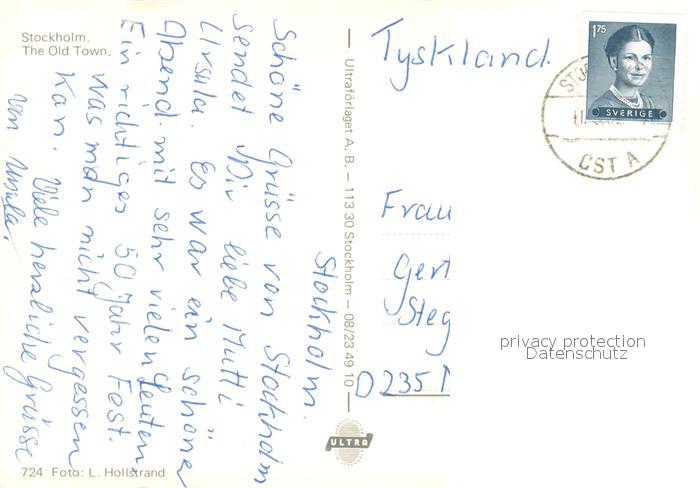 Stockholm.
The Old Town.
Stockholm.
Schöne Grüsse von Stockholm
sendet Dir liebe Mutti
Ursula. Es war ein schöner
Abend mit sehr vielen Leuten,
Ein richtiges 50 Jahr Fest.
was man nicht vergessen
Kan. Viele herzliche Grüsse
von Ursula.
724 Foto: L. Hollstrand
Ultraförlaget A. B. – 113 30 Stockholm – 08/23 49 10
ULTRA
Tyskland.
1.75
SVERIGE
CST A
Frau
Gert
Steg
D 235
privacy protection
Datenschutz